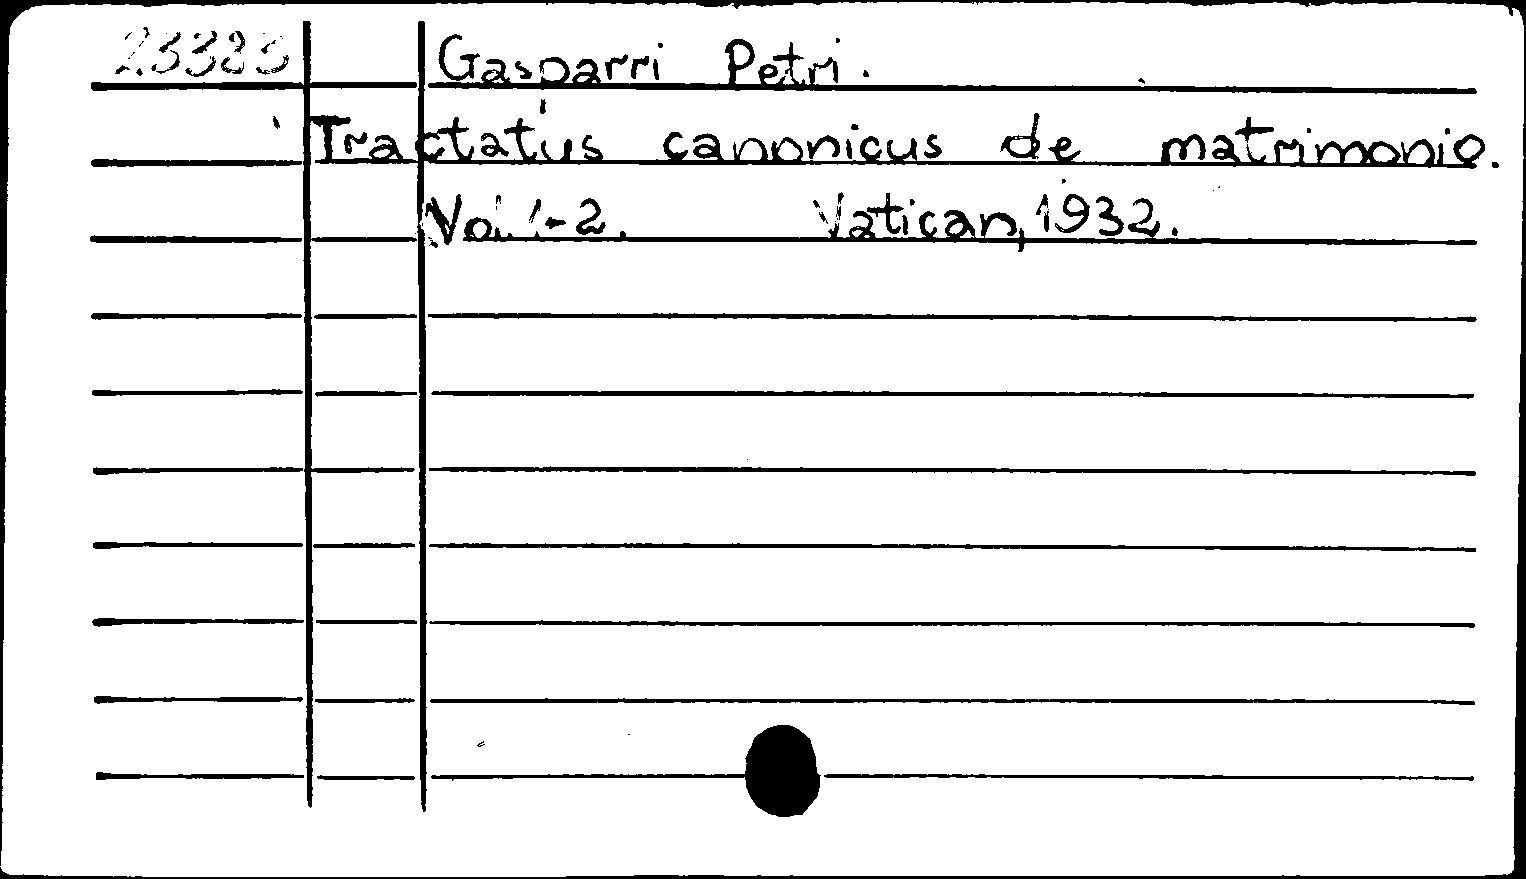 23383 Gasparri Petri.
Tractatus canonicus de matrimonio.
Vol. 1-2. Vatican, 1932.